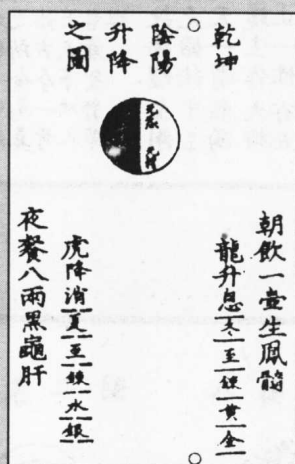 乾坤
陰陽
升降
之圖
元氣
元精
朝飲一壺生鳳髓
龍升息冬至煉黃金
虎降消夏至煉水銀
夜餐八兩黑龜肝